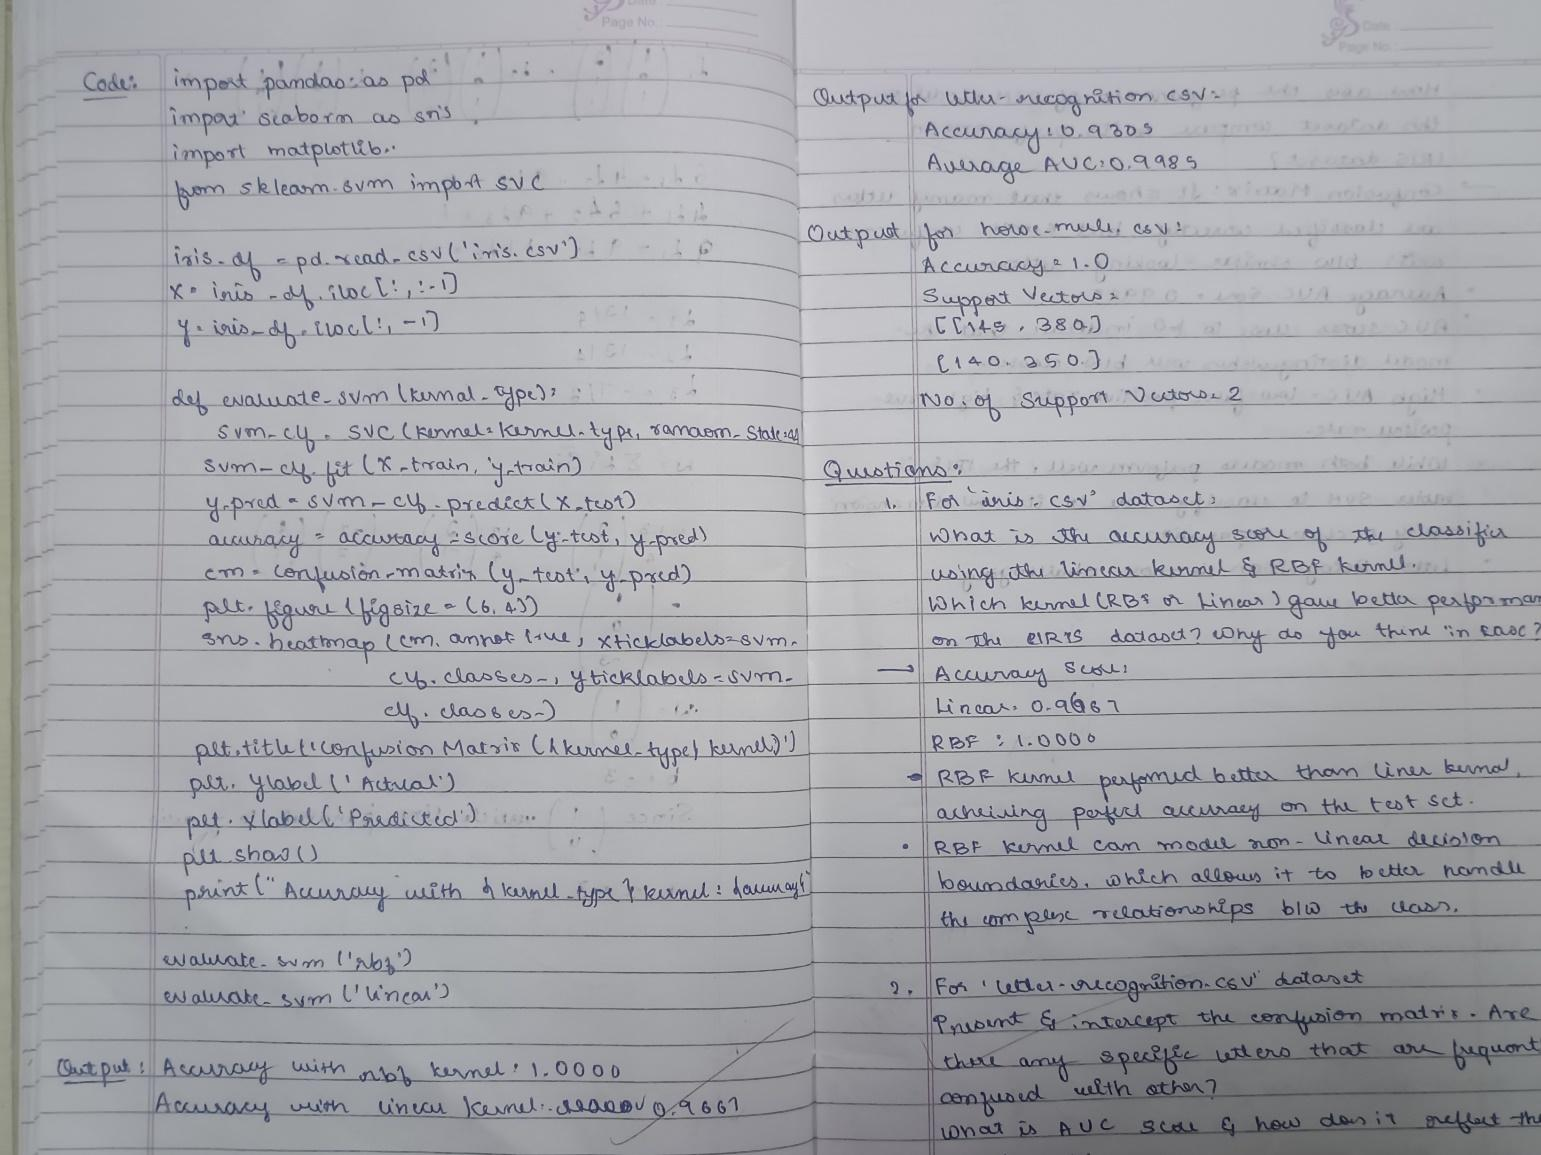 Page No.
Code: import pandas as pd
import seaborn as sns
import matplotlib..
from sklearn.svm import SVC
iris_df = pd.read_csv('iris.csv')
x = iris_df.iloc[:,:-1]
y = iris_df.iloc[:,-1]
def evaluate_svm (kernal_type):
svm_clf = SVC (kernel=kernel_type, random_state=
svm_clf.fit (X_train, y_train)
y_pred = svm_clf.predict(X_test)
accuracy = accuracy_score (y_test, y_pred)
cm = confusion_matrix (y_test, y_pred)
plt.figure (figsize = (6,4))
sns.heatmap (cm, annot true, xticklabels=svm_
clf.classes_, yticklabels=svm_
clf.classes_)
plt.title('Confusion Matrix ({kernel_type} kernel)')
plt.ylabel('Actual')
plt.xlabel('Predicted')
plt show()
print("Accuracy with {kernel_type} kernel: {accuracy}
evaluate_svm ('rbf')
evaluate_svm ('linear')
Output: Accuracy with rbf kernel: 1.0000
Accuracy with linear kernel: 0.9667
Date
Page No.
Output for letter-recognition csv:
Accuracy: 0.9305
Average AUC: 0.9985
Output for horse-mule.csv:
Accuracy = 1.0
Support Vectors =
[[145. 380.]
[140. 350.]
No. of Support Vectors = 2
Questions:
1. For 'iris.csv' dataset:
What is the accuracy score of the classifier
using the linear kernel & RBF kernel.
Which kernel (RBF or Linear) gave better performan
on the IRIS dataset? Why do you think in case?
→ Accuracy Score:
Linear: 0.9667
RBF: 1.0000
• RBF Kernel perfomed better than liner kernel,
acheiving perfect accuracy on the test set.
• RBF kernel can model non-linear decision
boundaries, which allows it to better handle
the complex relationships b/w the class.
2. For 'letter-recognition.csv' dataset
Present & intercept the confusion matrix. Are
there any specific letters that are frequent
confused with other?
What is AUC score & how does it reflect the